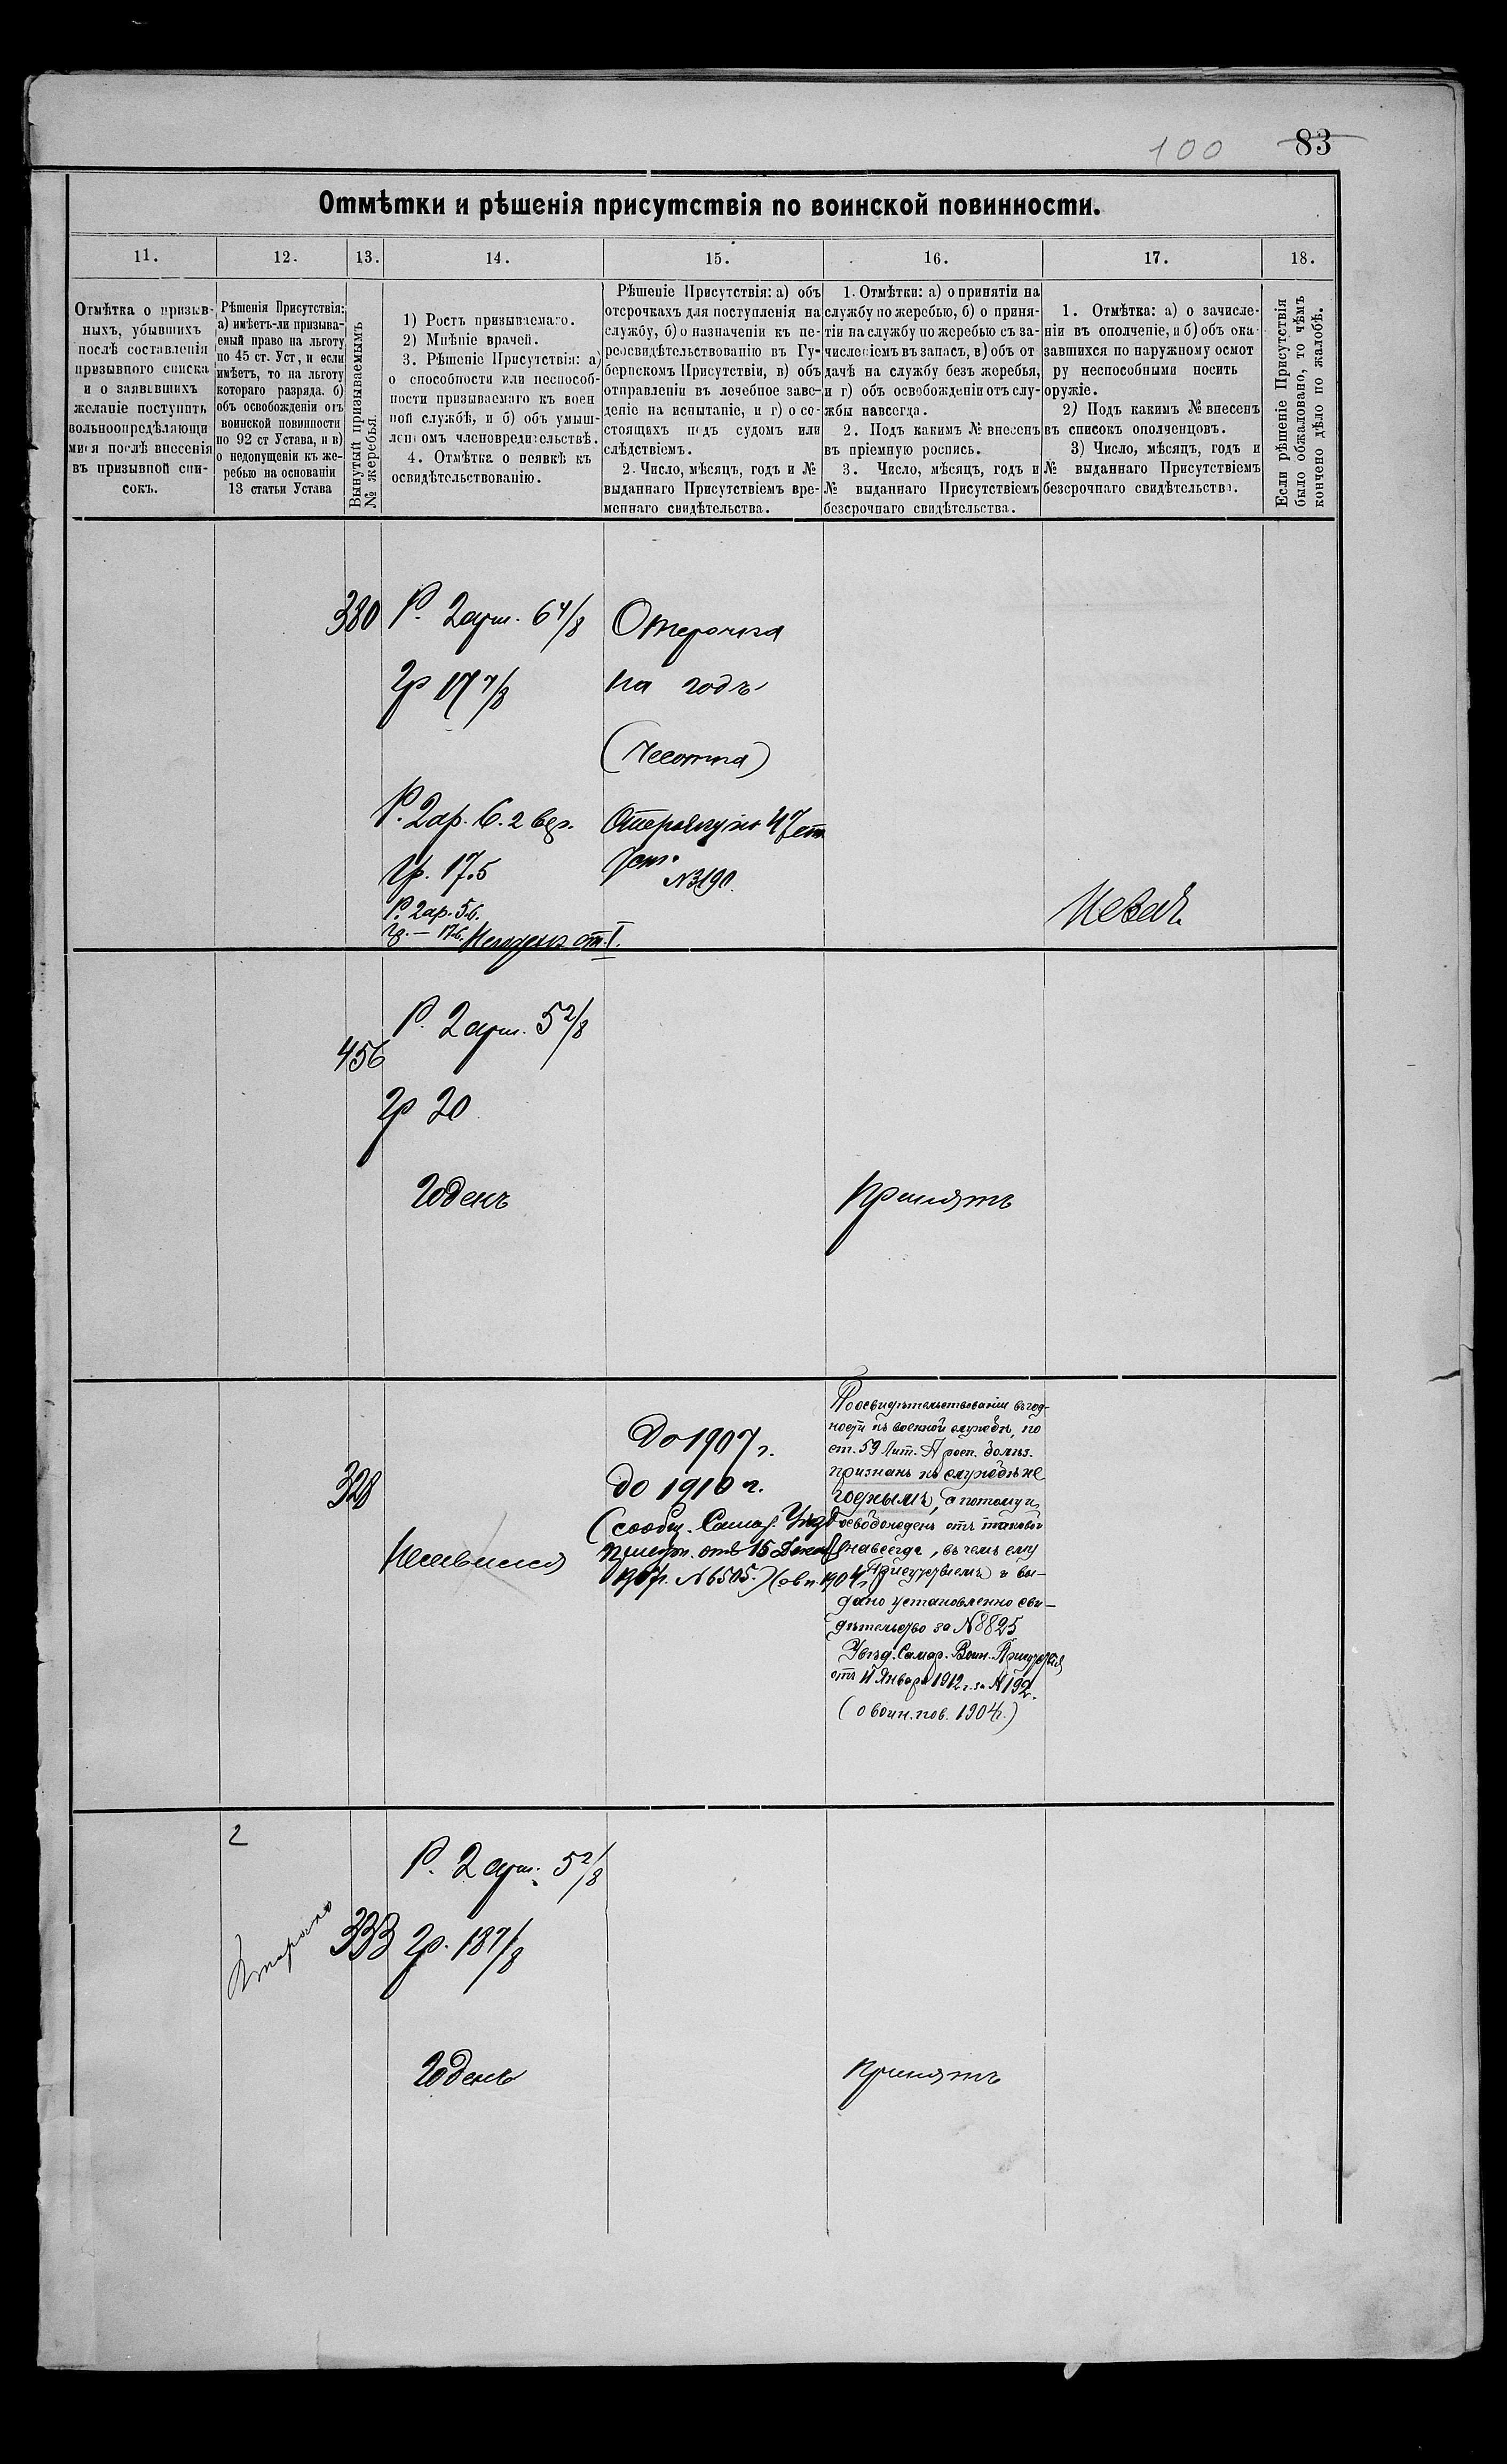 100 83
Отмѣтки и рѣшенія присутствія по воинской повинности.
11. 12. 13. 14. 15. 16. 17. 18.
Отмѣтка о призыв-
ныхъ, убывшихъ
послѣ составленія
призывного списка
и о заявившихъ
желаніе поступить
вольноопредѣляющи
мися послѣ внесенія
въ призывной спи-
сокъ.
Рѣшенія Присутствія:
а) имѣетъ-ли призыва-
емый право на льготу
по 45 ст. Уст, и если
имѣетъ, то на льготу
котораго разряда. б)
объ освобожденіи отъ
воинской повинности
по 92 ст Устава, и в)
о недопущеніи къ же-
ребью на основаніи
13 статьи Устава
Вынутый призываемымъ
№ жеребья.
1) Ростъ призываемаго.
2) Мнѣніе врачей.
3. Рѣшеніе Присутствія: а)
о способности или неспособ-
ности призываемаго къ воен
ной службѣ, и б) объ умыш-
леномъ членовредительствѣ.
4. Отмѣтка о неявкѣ къ
освидѣтельствованію.
Рѣшеніе Присутствія: а) объ
отсрочкахъ для поступленія на
службу, б) о назначеніи къ пе-
реосвидѣтельствованію въ Гу-
бернскомъ Присутствіи, в) объ
отправленіи въ лечебное заве-
деніе на испытаніе, и г) о со-
стоящахъ подъ судомъ или
слѣдствіемъ.
2. Число, мѣсяцъ, годъ и №
выданнаго Присутствіемъ вре-
меннаго свидѣтельства.
1. Отмѣтки: а) о принятіи на
службу по жеребью, б) о приня-
тіи на службу по жеребью съ за-
численіемъ въ запасъ, в) объ от
дачѣ на службу безъ жеребья,
и г) объ освобожденіи отъ слу-
жбы навсегда.
2. Подъ какимъ № внесенъ
въ пріемную роспись.
3. Число, мѣсяцъ, годъ и
№ выданнаго Присутствіемъ
безсрочнаго свидѣтельства.
1. Отмѣтка: а) о зачисле-
ніи въ ополченіе, и б) объ ока
завшихся по наружному осмот
ру неспособными носить
оружіе.
2) Подъ какимъ № внесенъ
въ списокъ ополченцовъ.
3) Число, мѣсяцъ, годъ и
№ выданнаго Присутствіемъ
безсрочнаго свидѣтельства.
Если рѣшеніе Присутствія
было обжаловано, то чѣмъ
кончено дѣло по жалобѣ.
380
Р. 2 арш. 6 4/8
Гр 17 7/8
Р. 2 ар. 6. 2 вер.
Гр. 17.5
Р. 2 ар. 5 6.
Гр. — 17 6. Негоденъ ст. I.
Отсрочка
на годъ
(Чесотка)
№ 3190.
456
Р. 2 арш. 5 2/8
Гр 20
Годенъ
Принятъ
328
Неявился
До 1907 г.
до 1910 г.
(сообщ. Самар. Уѣзд
Присутв. отъ 15 Декаб
1907 г. № 6505.)
По освидѣтельствованіи въ год-
ности къ военной службѣ, по
ст. 59 Лит. А росп. болѣз.
признанъ къ службѣ не
годнымъ, а потому и
освобожденъ отъ таковой
навсегда, въ чемъ ему
Присутствіемъ и вы-
дано установленно сви-
дѣтельство за № 8825
Уѣзд. Самар. Воин. Присутствія
отъ 11 Января 1912 г. за № 192.
(о воин. пов. 1904 г.)
2
333
Р. 2 арш. 5 2/8
Гр. 18 7/8
Годенъ
Принятъ